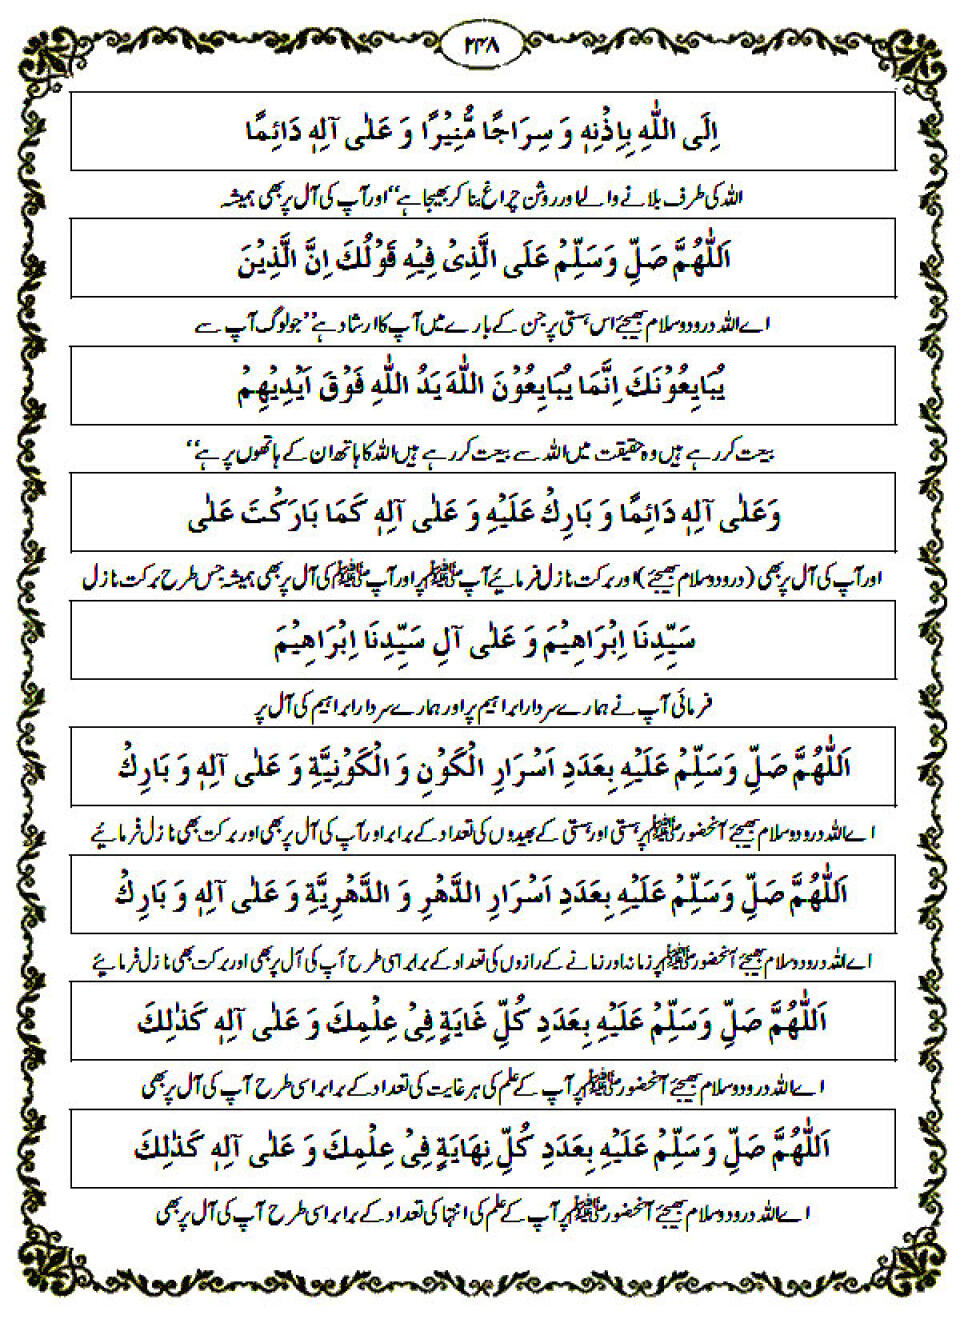 ۲۳۸
اِلَى اللّٰهِ بِاِذْنِهٖ وَ سِرَاجًا مُّنِيْرًا وَ عَلٰى آلِهٖ دَائِمًا
اللہ کی طرف بلانے والے اور روشن چراغ بنا کر بھیجا ہے‘‘ اور آپ کی آل پر بھی ہمیشہ
اَللّٰهُمَّ صَلِّ وَسَلِّمْ عَلَى الَّذِىْ فِيْهِ قَوْلُكَ اِنَّ الَّذِيْنَ
اے اللہ درود و سلام بھیجئے اس ہستی پر جن کے بارے میں آپ کا ارشاد ہے’’جو لوگ آپ سے
يُبَايِعُوْنَكَ اِنَّمَا يُبَايِعُوْنَ اللّٰهَ يَدُ اللّٰهِ فَوْقَ اَيْدِيْهِمْ
بیعت کر رہے ہیں وہ حقیقت میں اللہ سے بیعت کر رہے ہیں اللہ کا ہاتھ ان کے ہاتھوں پر ہے‘‘
وَعَلٰى آلِهٖ دَائِمًا وَ بَارِكْ عَلَيْهِ وَ عَلٰى آلِهٖ كَمَا بَارَكْتَ عَلٰى
اور آپ کی آل پر بھی (درود و سلام بھیجئے) اور برکت نازل فرمائیے آپ ﷺ پر اور آپ ﷺ کی آل پر بھی ہمیشہ جس طرح برکت نازل
سَيِّدِنَا اِبْرَاهِيْمَ وَ عَلٰى آلِ سَيِّدِنَا اِبْرَاهِيْمَ
فرمائی آپ نے ہمارے سردار ابراہیم پر اور ہمارے سردار ابراہیم کی آل پر
اَللّٰهُمَّ صَلِّ وَسَلِّمْ عَلَيْهِ بِعَدَدِ اَسْرَارِ الْكَوْنِ وَ الْكَوْنِيَّةِ وَ عَلٰى آلِهٖ وَ بَارِكْ
اے اللہ درود و سلام بھیجئے آنحضور ﷺ پر ہستی اور ہستی کے بھیدوں کی تعداد کے برابر اور آپ کی آل پر بھی اور برکت بھی نازل فرمائیے
اَللّٰهُمَّ صَلِّ وَسَلِّمْ عَلَيْهِ بِعَدَدِ اَسْرَارِ الدَّهْرِ وَ الدَّهْرِيَّةِ وَ عَلٰى آلِهٖ وَ بَارِكْ
اے اللہ درود و سلام بھیجئے آنحضور ﷺ پر زمانہ اور زمانے کے رازوں کی تعداد کے برابر اسی طرح آپ کی آل پر بھی اور برکت بھی نازل فرمائیے
اَللّٰهُمَّ صَلِّ وَسَلِّمْ عَلَيْهِ بِعَدَدِ كُلِّ غَايَةٍ فِىْ عِلْمِكَ وَ عَلٰى آلِهٖ كَذٰلِكَ
اے اللہ درود و سلام بھیجئے آنحضور ﷺ پر آپ کے علم کی ہر غایت کی تعداد کے برابر اسی طرح آپ کی آل پر بھی
اَللّٰهُمَّ صَلِّ وَسَلِّمْ عَلَيْهِ بِعَدَدِ كُلِّ نِهَايَةٍ فِىْ عِلْمِكَ وَ عَلٰى آلِهٖ كَذٰلِكَ
اے اللہ درود و سلام بھیجئے آنحضور ﷺ پر آپ کے علم کی انتہا کی تعداد کے برابر اسی طرح آپ کی آل پر بھی